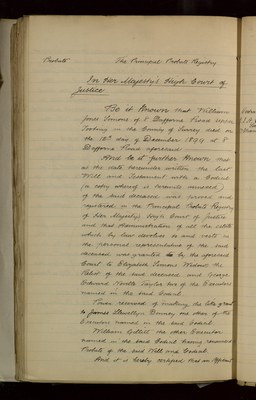 Probate The Principal Probate Registry
In Her Majesty's High Court of
Justice
Be it Known that William
Jones Timons of 8 Dafforne Road Upper
Tooting in the County of Surrey died on
the 12th day of December 1899 at 8
Dafforne Road aforesaid
And be it further Known that
at the date hereunder written the last
Will and Testament with a Codicil
(a copy whereof is hereunto annexed)
of the said deceased was proved and
registered in the Principal Probate Registry
of Her Majesty's High Court of Justice
and that Administration of all the estate
which by law devolves to and vests in
the personal representative of the said
deceased was granted by the aforesaid
Court to Elizabeth Widow the
Relict of the said deceased and George
Edward Neville Taylor two of the Executors
named in the said Codicil
Power reserved of making the like grant
to James Llewellyn one other of the
Executors named in the said Codicil
William Gillett the other Executor
named in the said Codicil having renounced
Probate of the said Will and Codicil
And it is hereby certified that an Affidavit